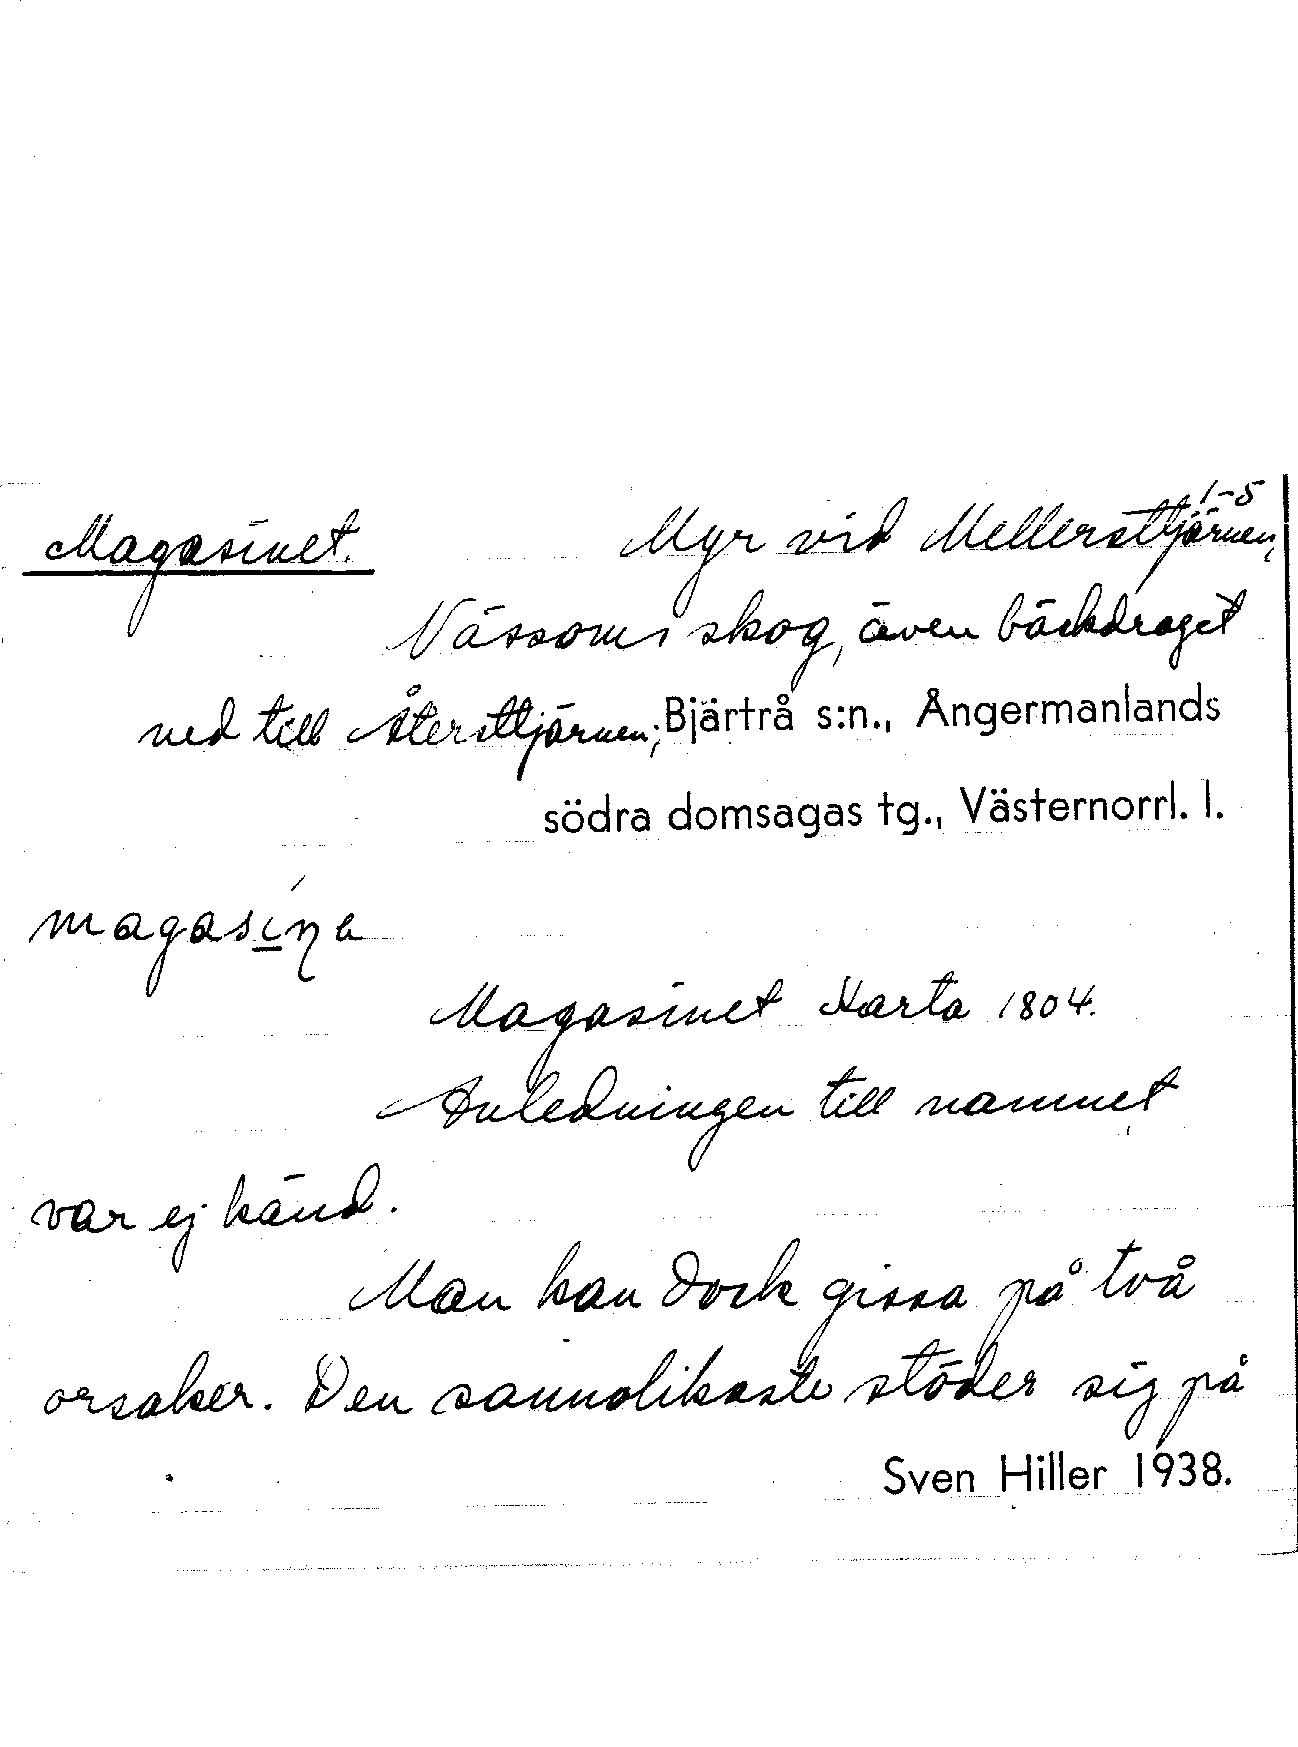 1-5
Magasinet. Myr vid Mellersttjärnen,
Nässoms skog, även bäckdraget
ned till Återsttjärnen; Bjärtrå s:n., Ångermanlands
södra domsagas tg., Västernorrl. l.
magasi̲ńa
Magasinet Karta 1804.
Anledningen till namnet
var ej känd.
Man kan dock gissa på två
orsaker. Den sannolikaste stöder sig på
Sven Hiller 1938.